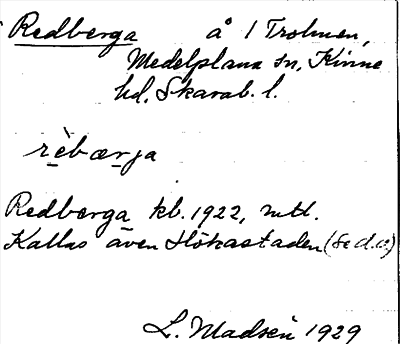 Redberga å 1 Trolmen,
Medelplana sn, Kinne
hd, Skarab. l.
rèbærja
Redberga kb. 1922, mtl.
Kallas även Hökastaden (Se d.o)
L. Madsén 1929